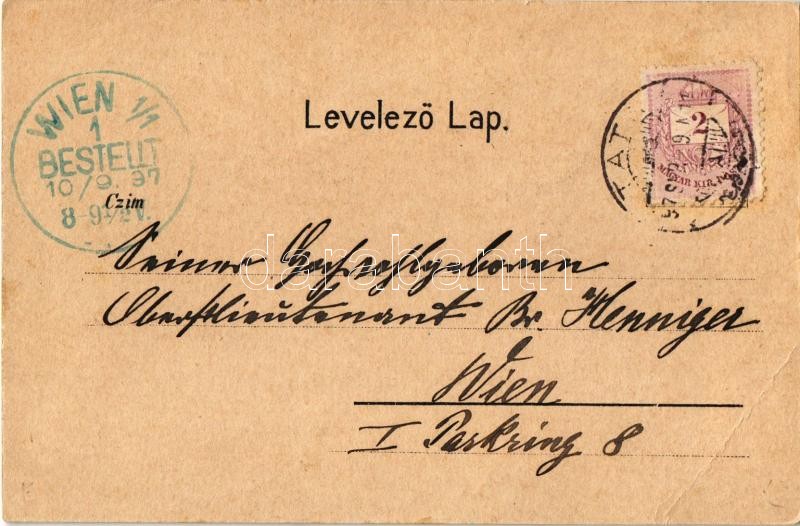 Levelező Lap.
WIEN 1/1
1
BESTELLT
10/9.97
8-9½V.
Czim
2
MAGYAR KIR.
TAT
darabanth.com
Seiner Hochwohlgeboren
Oberstlieutenant Br. Henniger
Wien
I Parkring 8